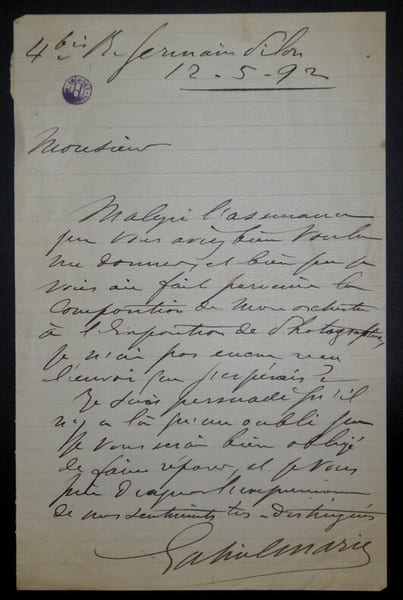 4 bis R. Germain Pilon
12-5-92
Monsieur
Malgré l'assurance
que vous aviez bien voulu
me donner, et bien que je
vous aie fait parvenir la
composition de mon orchestre
à l'Exposition de Photographie,
je n'ai pas encore reçu
l'envoi que j'espérais?
Je suis persuadé qu'il
n'y a là qu'un oubli que
je vous serai bien obligé
de faire réparer, et je vous
prie d'agréer l'expression
de mes sentiments très-distingués
Gabriel Marie